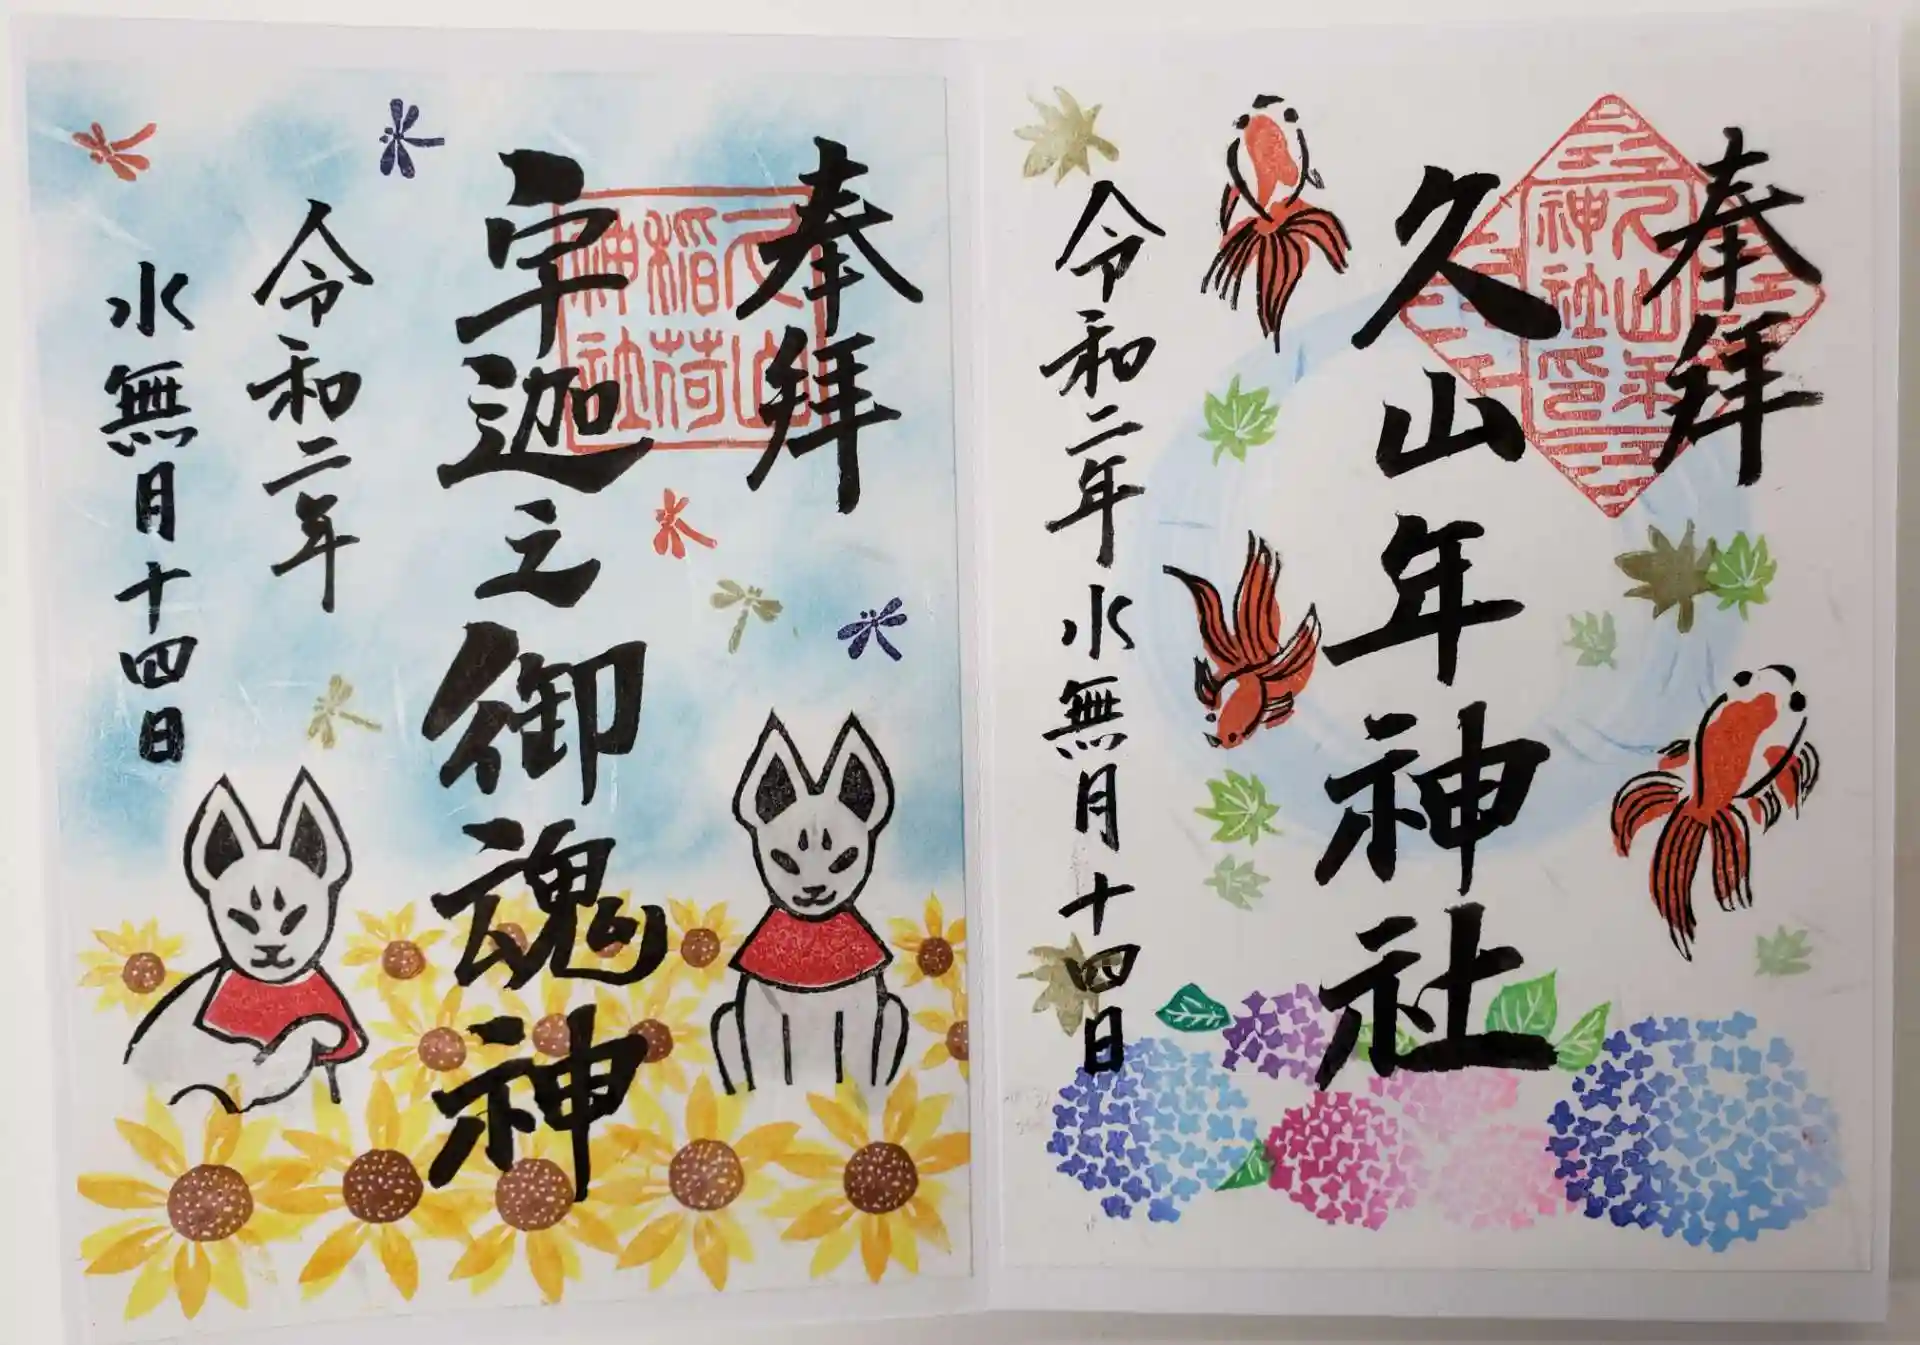 奉拝
久山年神社
久山年
神社印
令和二年水無月十四日
奉拝
宇迦之御魂神
久山
稲荷
神社
令和二年
水無月十四日